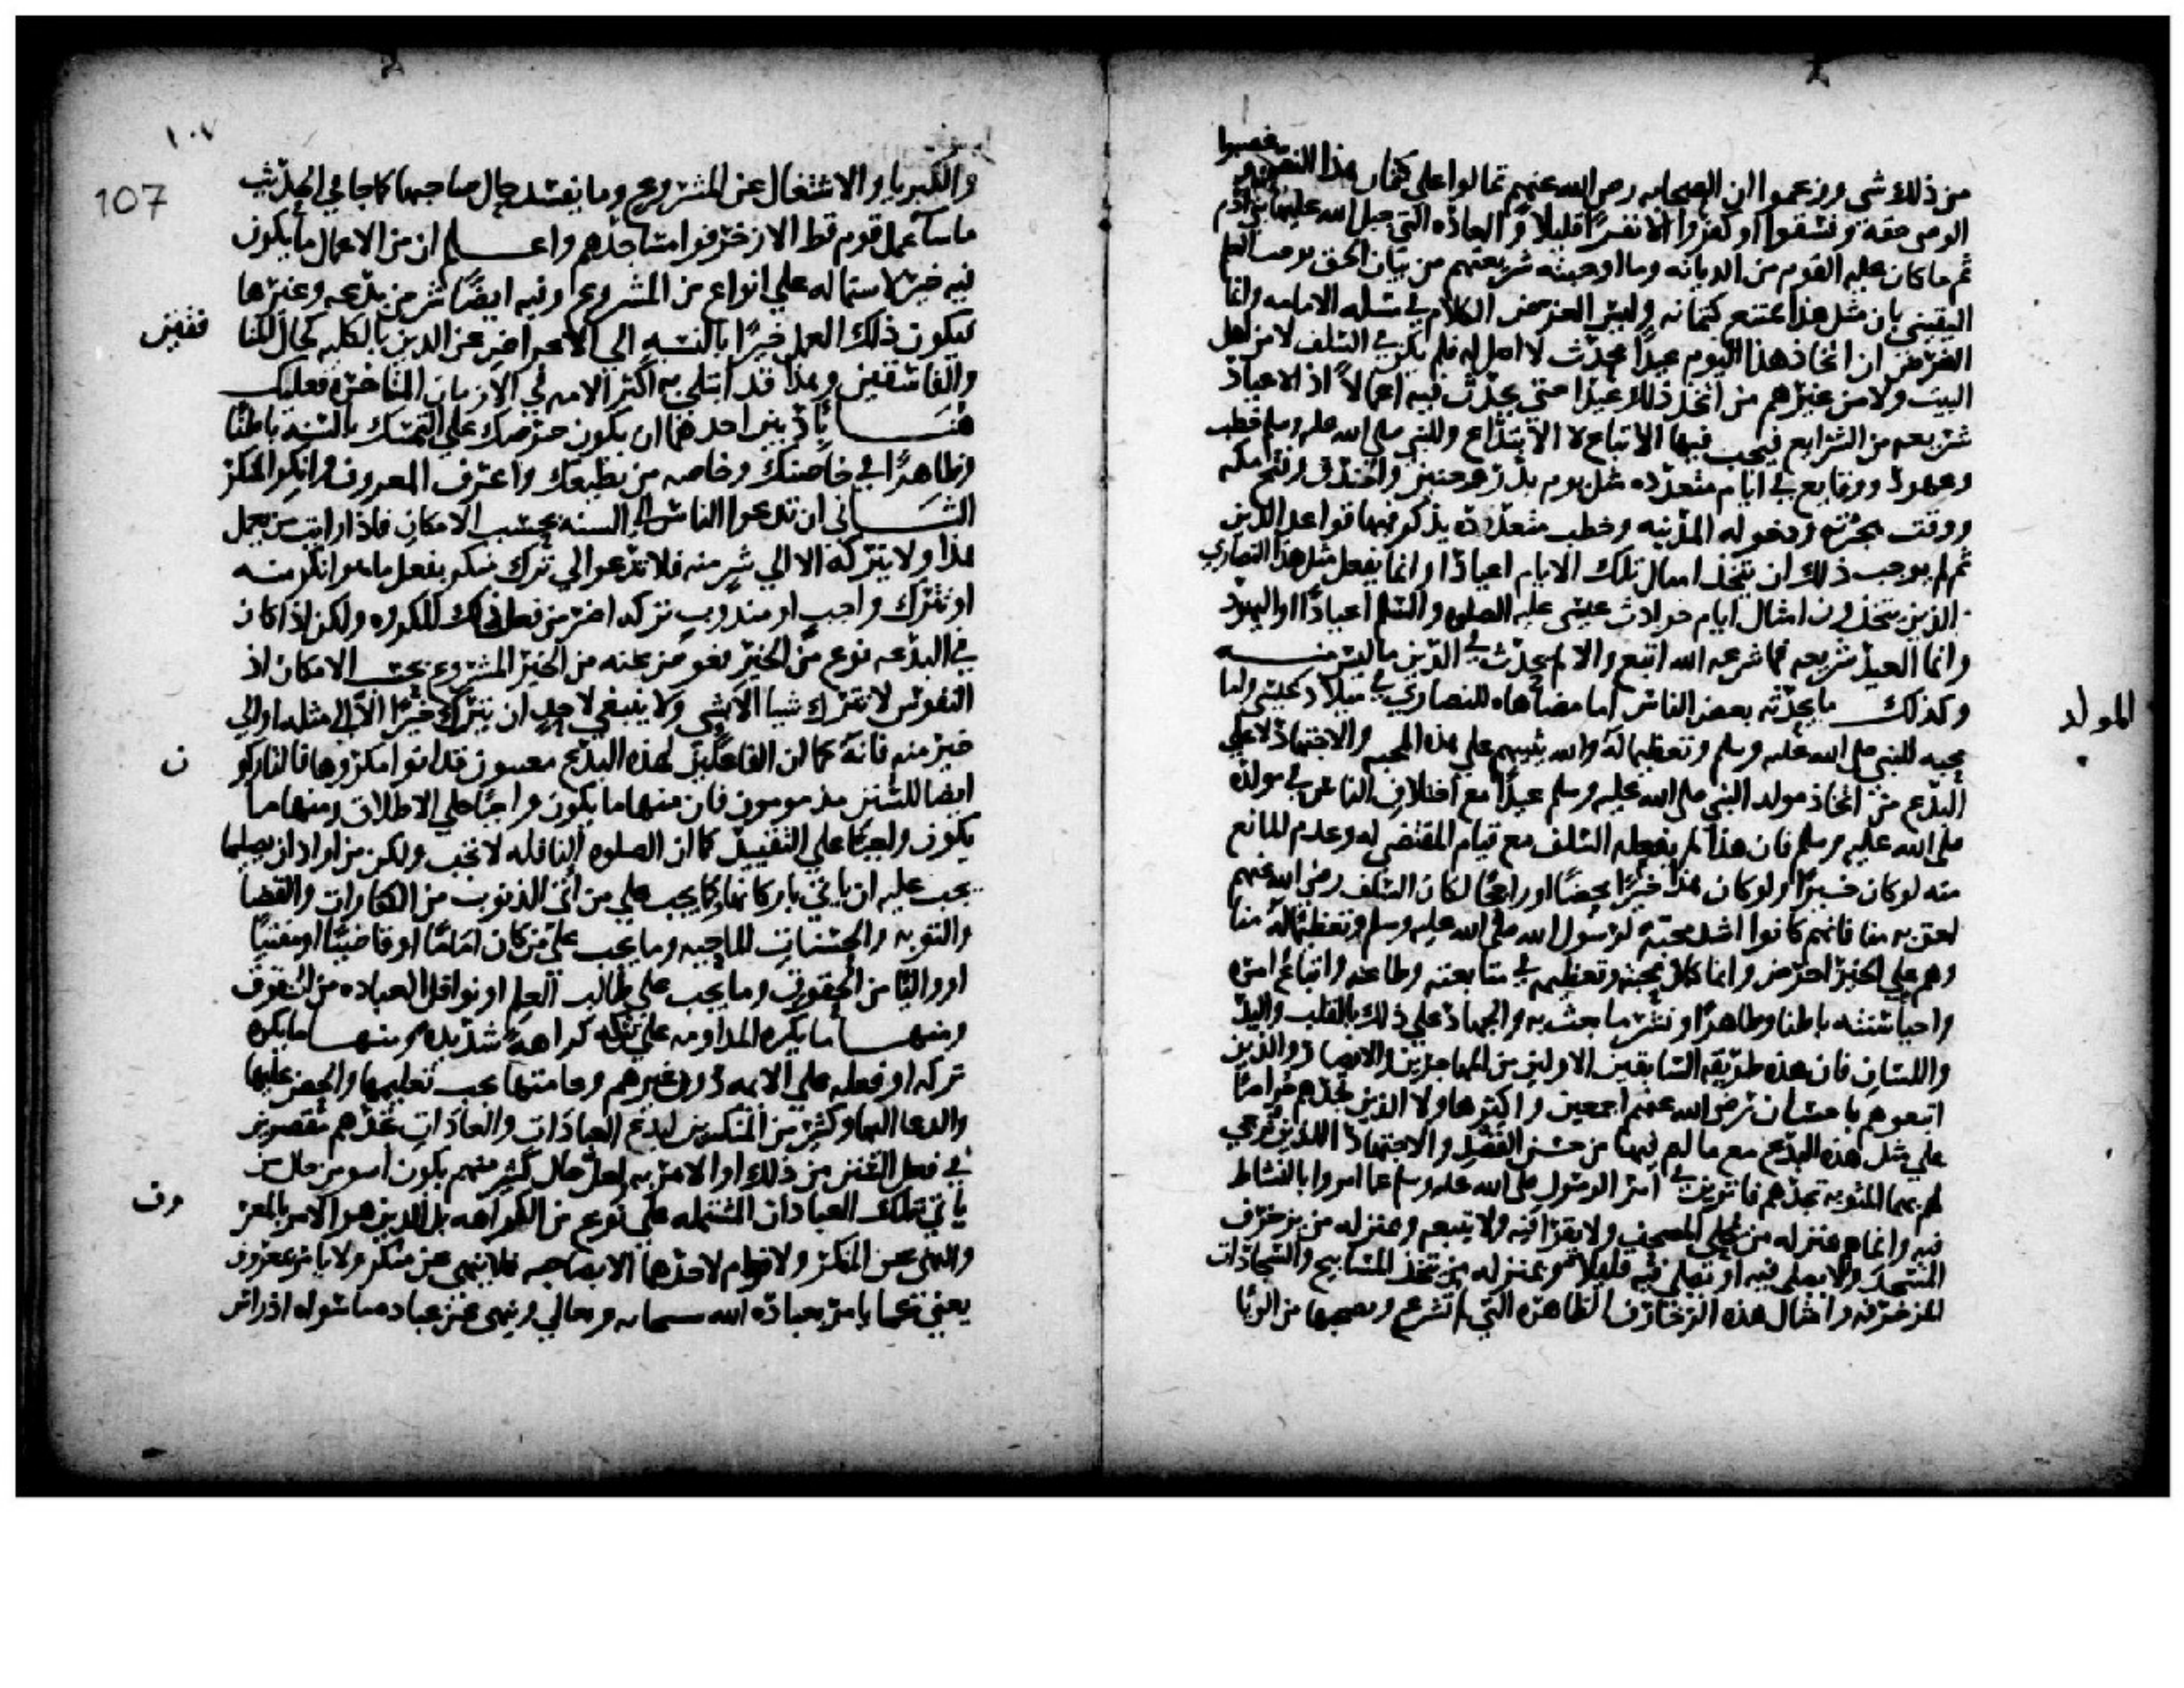 وغصبوا
من ذلك شي وزعموا ان الصحابه رضي الله عنهم تمالوا على كتمان هذا النص
الوصي حقه وفسقوا او كفروا الا نفرا قليلا والعاده التي جبل الله عليها بني ادم
ثم ما كان عليه القوم من الديانه وما اوجبته شريعتهم من بيان الحق يوجب العلم
اليقيني بان مثل هذا يمتنع كتمانه وليس الغرض الكلام في مسله الامامه وانما
الغرض ان اتخاذ هذا اليوم عيدا محدث لا اصل له فلم يكن في السلف لا من اهل
البيت ولا من غيرهم من اتخذ ذلك عيدا حتى يحدث فيه اعمالا اذ الاعياد
شريعه من الشرايع فيجب فيها الاتباع لا الابتداع وللنبي صلى الله عليه وسلم خطب
وعهود ووقايع في ايام متعدده مثل يوم بدر وحنين والخندق وفتح مكه
ووقت هجرته ودخوله المدينه وخطب متعدده يذكر فيها قواعد الدين
ثم لم يوجب ذلك ان يتخذ امثال تلك الايام اعيادا وانما يفعل مثل هذا النصارى
الذين يتخذون امثال ايام حوادث عيسى عليه الصلوه والسلم اعيادا او اليهود
وانما العيد شريعه فما شرعه الله اتبع والا لم يحدث في الدين ما ليس منه
وكذلك ما يحدثه بعض الناس اما مضاهاه للنصارى في ميلاد عيسى واما
المولد
محبه للنبي صلى الله عليه وسلم وتعظيما له والله يثيبهم على هذه المحبه والاجتهاد لا على
البدع من اتخاذ مولد النبي صلى الله عليه وسلم عيدا مع اختلاف الناس في مولده
صلى الله عليه وسلم فان هذا لم يفعله السلف مع قيام المقتضى له وعدم المانع
منه لو كان خيرا ولو كان هذا خيرا محضا او راجحا لكان السلف رضي الله عنهم
احق به منا فانهم كانوا اشد محبة لرسول الله صلى الله عليه وسلم وتعظيما له منا
وهم على الخير احرص وانما كمال محبته وتعظيمه في متابعته وطاعته واتباع امره
واحيا سنته باطنا وظاهرا ونشر ما بعث به والجهاد على ذلك بالقلب واليد
واللسان فان هذه طريقه السابقين الاولين من المهاجرين والانصار والذين
اتبعوهم باحسان رضي الله عنهم اجمعين واكثر هاولا الذين تجدهم حراصا
على مثل هذه البدع مع ما لهم فيها من حسن القصد والاجتهاد اللذين يرجى
لهم بهما المثوبه تجدهم فاترين في امر الرسول صلى الله عليه وسلم عما امروا بالنشاط
فيه وانما هم بمنزله من يحلي المصحف ولا يقرا فيه ولا يتبعه وبمنزله من يزخرف
المسجد ولا يصلي فيه او يصلي فيه قليلا وبمنزله من يتخذ المسابيح والسجادات
المزخرفه وامثال هذه الزخارف الظاهره التي لم تشرع ويصحبها من الريا
١٠٧
107
والكبريا والاشتغال عن المشروع وما يفسد حال صاحبها كما جا في الحديث
ما سا عمل قوم قط الا زخرفوا مساجدهم واعلم ان من الاعمال ما يكون
فيه خير لاشتماله على انواع من المشروع وفيه ايضا شر من بدعه وغيرها
فيكون ذلك العمل خيرا بالنسبه الى الاعراض عن الدين بالكليه كحال المنا
فقين
والفاسقين وهذا قد ابتلي به اكثر الامه في الازمان المتاخره فعليك
هنا بادبين احدهما ان يكون حرصك على التمسك بالسنه باطنا
وظاهرا في خاصتك وخاصه من يطيعك واعرف المعروف وانكر المنكر
الثاني ان تدعو الناس الى السنه بحسب الامكان فاذا رايت من يعمل
هذا ولا يتركه الا الى شر منه فلا تدعوا الى ترك منكر بفعل ما هو انكر منه
او بترك واجب او مندوب تركه اضر من فعل ذلك المكروه ولكن اذا كان
في البدعه نوع من الخير فعوض عنه من الخير المشروع بحسب الامكان اذ
النفوس لا تترك شيا الا بشي ولا ينبغي لاحد ان يترك خيرا الا الى مثله او الى
خير منه فانه كما ان الفاعلين لهذه البدع معيبون قد اتوا مكروها فالتاركو
ن
ايضا للسنن مذمومون فان منها ما يكون واجبا على الاطلاق ومنها ما
يكون واجبا على التقييد كما ان الصلوه النافله لا تجب ولكن من اراد ان يصليها
يجب عليه ان ياتي باركانها وكما يجب على من اتى الذنوب من الكفارات والقضا
والتوبه والحسنات الماحيه وما يجب على من كان اماما او قاضيا او مفتيا
او واليا من الحقوق وما يجب على طالب العلم او نوافل العباده من الحقوق
ومنها ما يكره المداومه على تركه كراهة شديده ومنها ما يكره
تركه او فعله على الايمه دون غيرهم وعامتها يجب تعليمها والحض عليها
والدعا اليها وكثير من المنكرين لبدع العبادات والعادات تجدهم مقصرين
في فعل السنن من ذلك او الامر به ولعل حال كثير منهم يكون اسو من حال من
ياتي بتلك العبادات المشتمله على نوع من الكراهه بل الدين هو الامر بالمعر
وف
والنهي عن المنكر ولا قوام لاحدهما الا بصاحبه فلا ينهى عن منكر ولا يامر بمعروف
يغني عنه كما يامر بعباده الله سبحانه وتعالى وينهى عن عباده ما سواه اذ راس